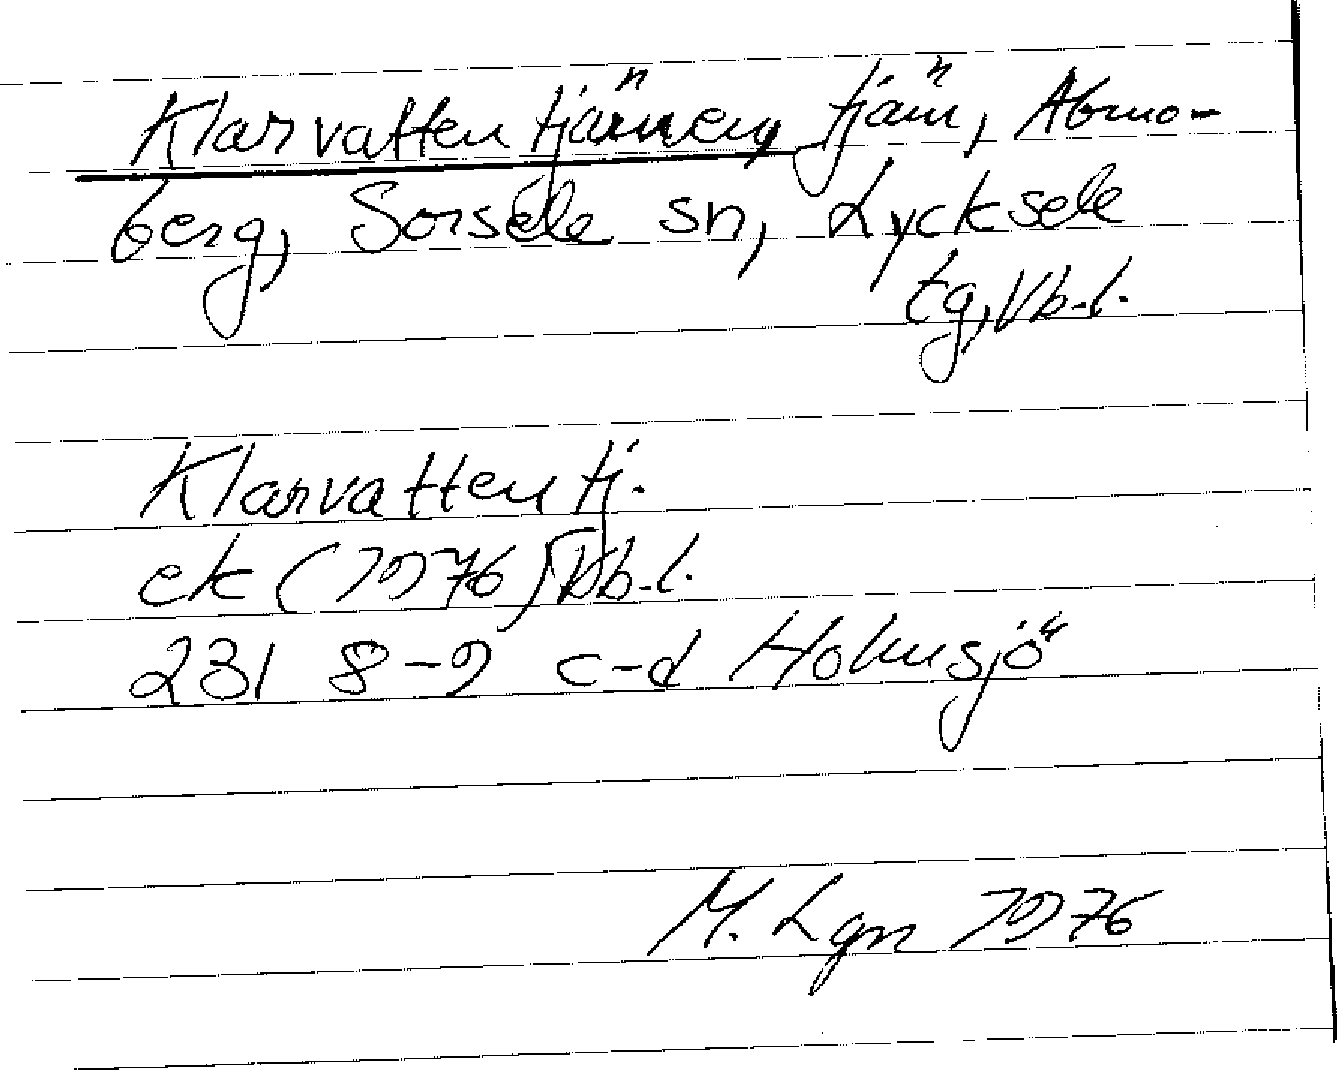 Klarvattentjärnen, tjärn, Abmo-
berg, Sorsele sn, Lycksele
tg, Vb.l.
Klarvattentj.
ek (1976) Vb.l.
23I 8-9 c-d Holmsjö
M. Lgn 1976